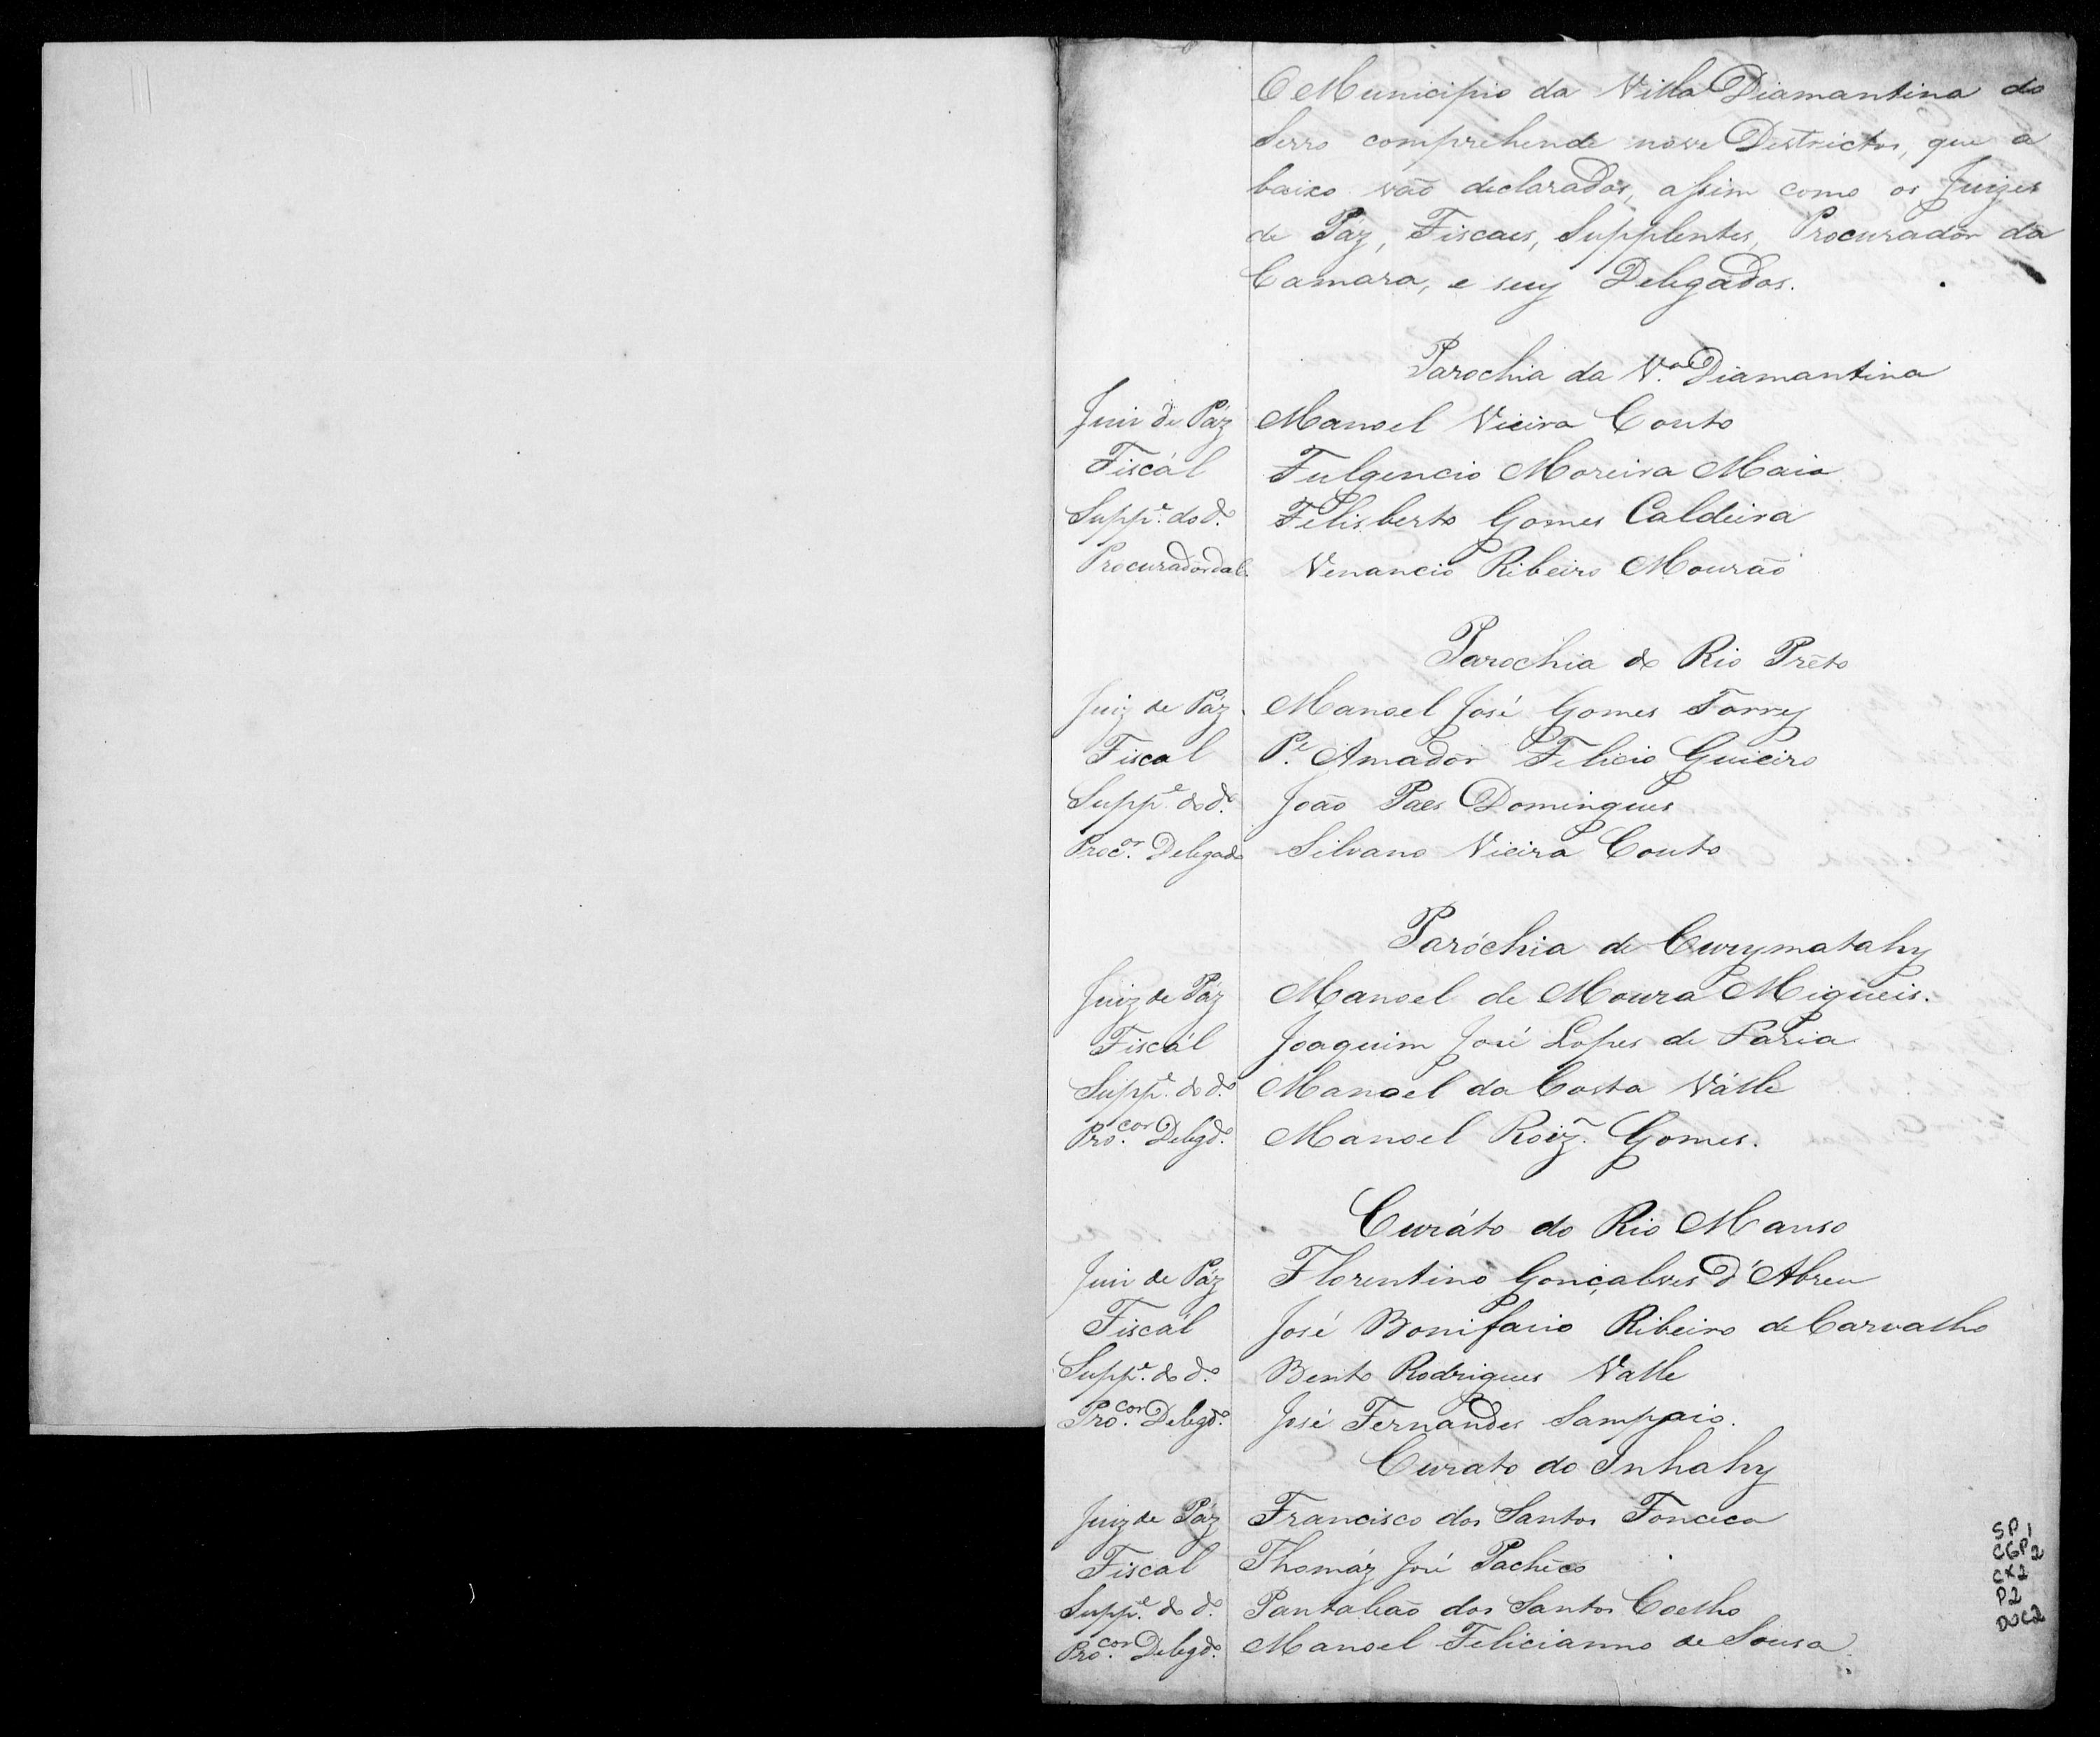 O Municipio da Villa Diamantina do
Serro comprehende nove Destrictos, que a
baixo vão declarados, assim como os Juizes
de Páz, Fiscaes, Supplentes, Procurador da
Camara, e seus Delegados.
Parochia da V.ª Diamantina
Juiz de Páz Manoel Vieira Couto
Fiscál Fulgencio Moreira Maia
Supp.e do d.o Felisberto Gomes Caldeira
Procurador da C. Venancio Ribeiro Mourão
Parochia do Rio Prêto
Juiz de Páz Manoel José Gomes Torres
Fiscal P.e Amador Felicio Guieiro
Supp.e do d.o João Paes Domingues
Proc.or Delegado Silvano Vieira Couto
Paróchia de Curymatahy
Juiz de Páz Manoel de Moura Migueis.
Fiscál Joaquim José Lopes de Faria
Supp.e do d.o Manoel da Costa Válle
Pro.cor Delegd.o Manoel Roiz̃. Gomes.
Curáto do Rio Manso
Juiz de Páz Florentino Gonçalves d'Abreu
Fiscál José Bonifacio Ribeiro de Carvalho
Supp.e do d.o Bento Rodrigues Valle
Pro.cor Delegd.o José Fernandes Sampaio.
Curato do Inhahy
Juiz de Páz Francisco dos Santos Fonceca
Fiscal Thomáz José Pachêco
Supp.e do d.o Pantaleão dos Santos Coelho
Pro.cor Delegd.o Manoel Felicianno de Sousa
SP 1
CGP 2
CX2
P2
DOC2